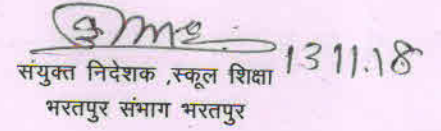 13 11.18
संयुक्त निदेशक ,स्कूल शिक्षा
भरतपुर संभाग भरतपुर